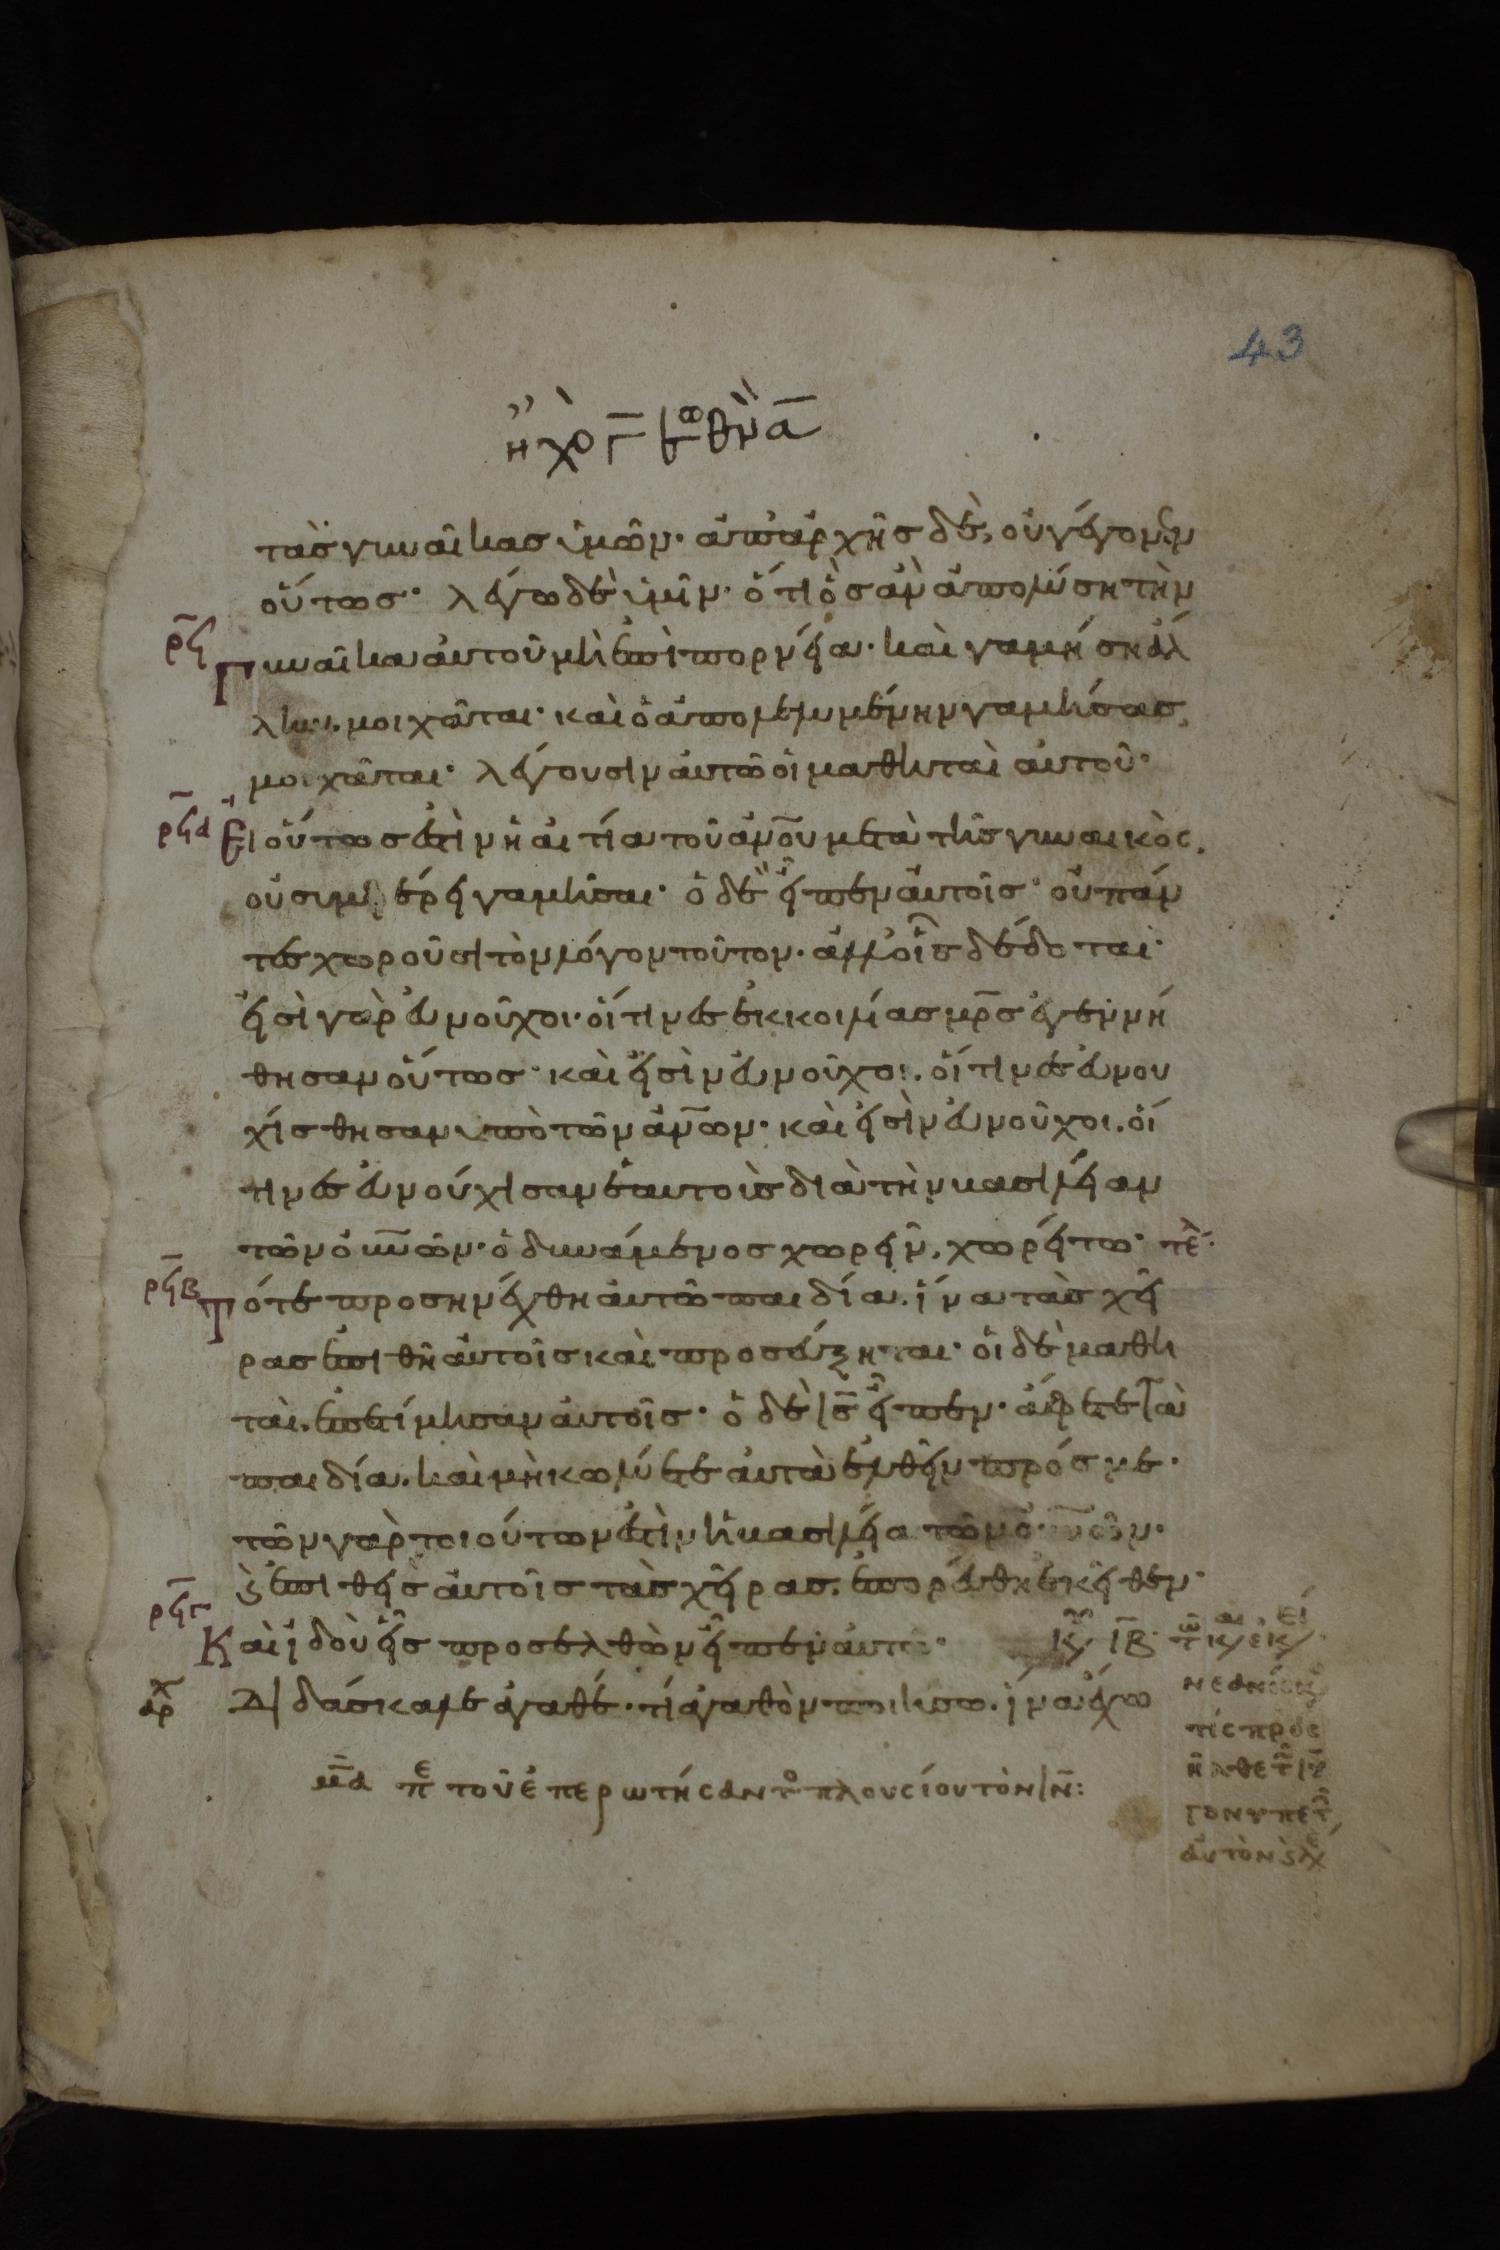 43
ἦχο γ ἑωθιν α
τὰς γυναῖκας ὑμῶν· ἀπαρχῆς δὲ, οὐ γέγονεν
οὕτως· λέγω δὲ ὑμῖν· ὅτι ὃς ἀν ἀπολύση τὴν
ρϟ Γυναῖκα αὐτοῦ μὴ ἐπὶ πορνεία· καὶ γαμήση ἀλ
λην, μοιχᾶται· καὶ ὁ ἀπολελυμένην γαμήσας,
μοιχᾶται· λέγουσιν αὐτῶ οἱ μαθηταὶ αὐτοῦ·
ρϟα Εἰ οὕτως ἐστὶν ἡ αἰτία τοῦ ἀνου μετὰ τῆς γυναικὸς,
οὐ συμφέρει γαμῆσαι· ὁ δὲ εἶπεν αὐτοῖς· οὐ πάν
τες χωροῦσι τὸν λόγον τοῦτον· ἀλλ οἷς δέδοται·
εἰσὶ γὰρ εὐνοῦχοι· οἵτινες ἐκ κοιλίας μρς ἐγεννή
θησαν οὕτως· καὶ εἰσὶν εὐνοῦχοι· οἵτινες εὐνου
χίσθησαν ὑπὸ τῶν ἀνων· καὶ εἰσὶν εὐνοῦχοι· οἵ
τινες εὐνούχισαν ἑαυτοὺς διὰ τὴν βασιλείαν
τῶν οὐνῶν· ὁ δυνάμενος χωρεῖν, χωρείτω· τε
ρϟβ Τότε προσηνέχθη αὐτῶ παιδία· ἵνα τὰς χεῖ
ρας ἐπιθῆ αὐτοῖς καὶ προσεύξηται· οἱ δὲ μαθη
ταὶ, ἐπετίμησαν αὐτοῖς· ὁ δὲ ις εἶπεν· ἄφετε τὰ
παιδία· καὶ μὴ κωλύετε αὐτὰ ἐλθεῖν πρός με·
τῶν γὰρ τοιούτων ἐστὶν ἡ βασιλεία τῶν οὐνῶν·
ϗ ἐπιθεὶς αὐτοῖς τὰς χεῖρας· ἐπορεύθη ἐκεῖθεν·
ρϟγ Καὶ ἰδοὺ εἷς προσελθὼν εἶπεν αὐτῶ· κυ ιβ τῶ κ ἐκεί
αρχ Διδάσκαλε ἀγαθέ· τί ἀγαθὸν ποιήσω· ἵνα ἔχω
νεανίσκ
τὶς προς
ῆλθε τ ιυ
γονυπετ
αὐτὸν ϗ λέγ
μα πε τοῦ ἐπερωτήσαντο πλουσίου τὸν ιν: